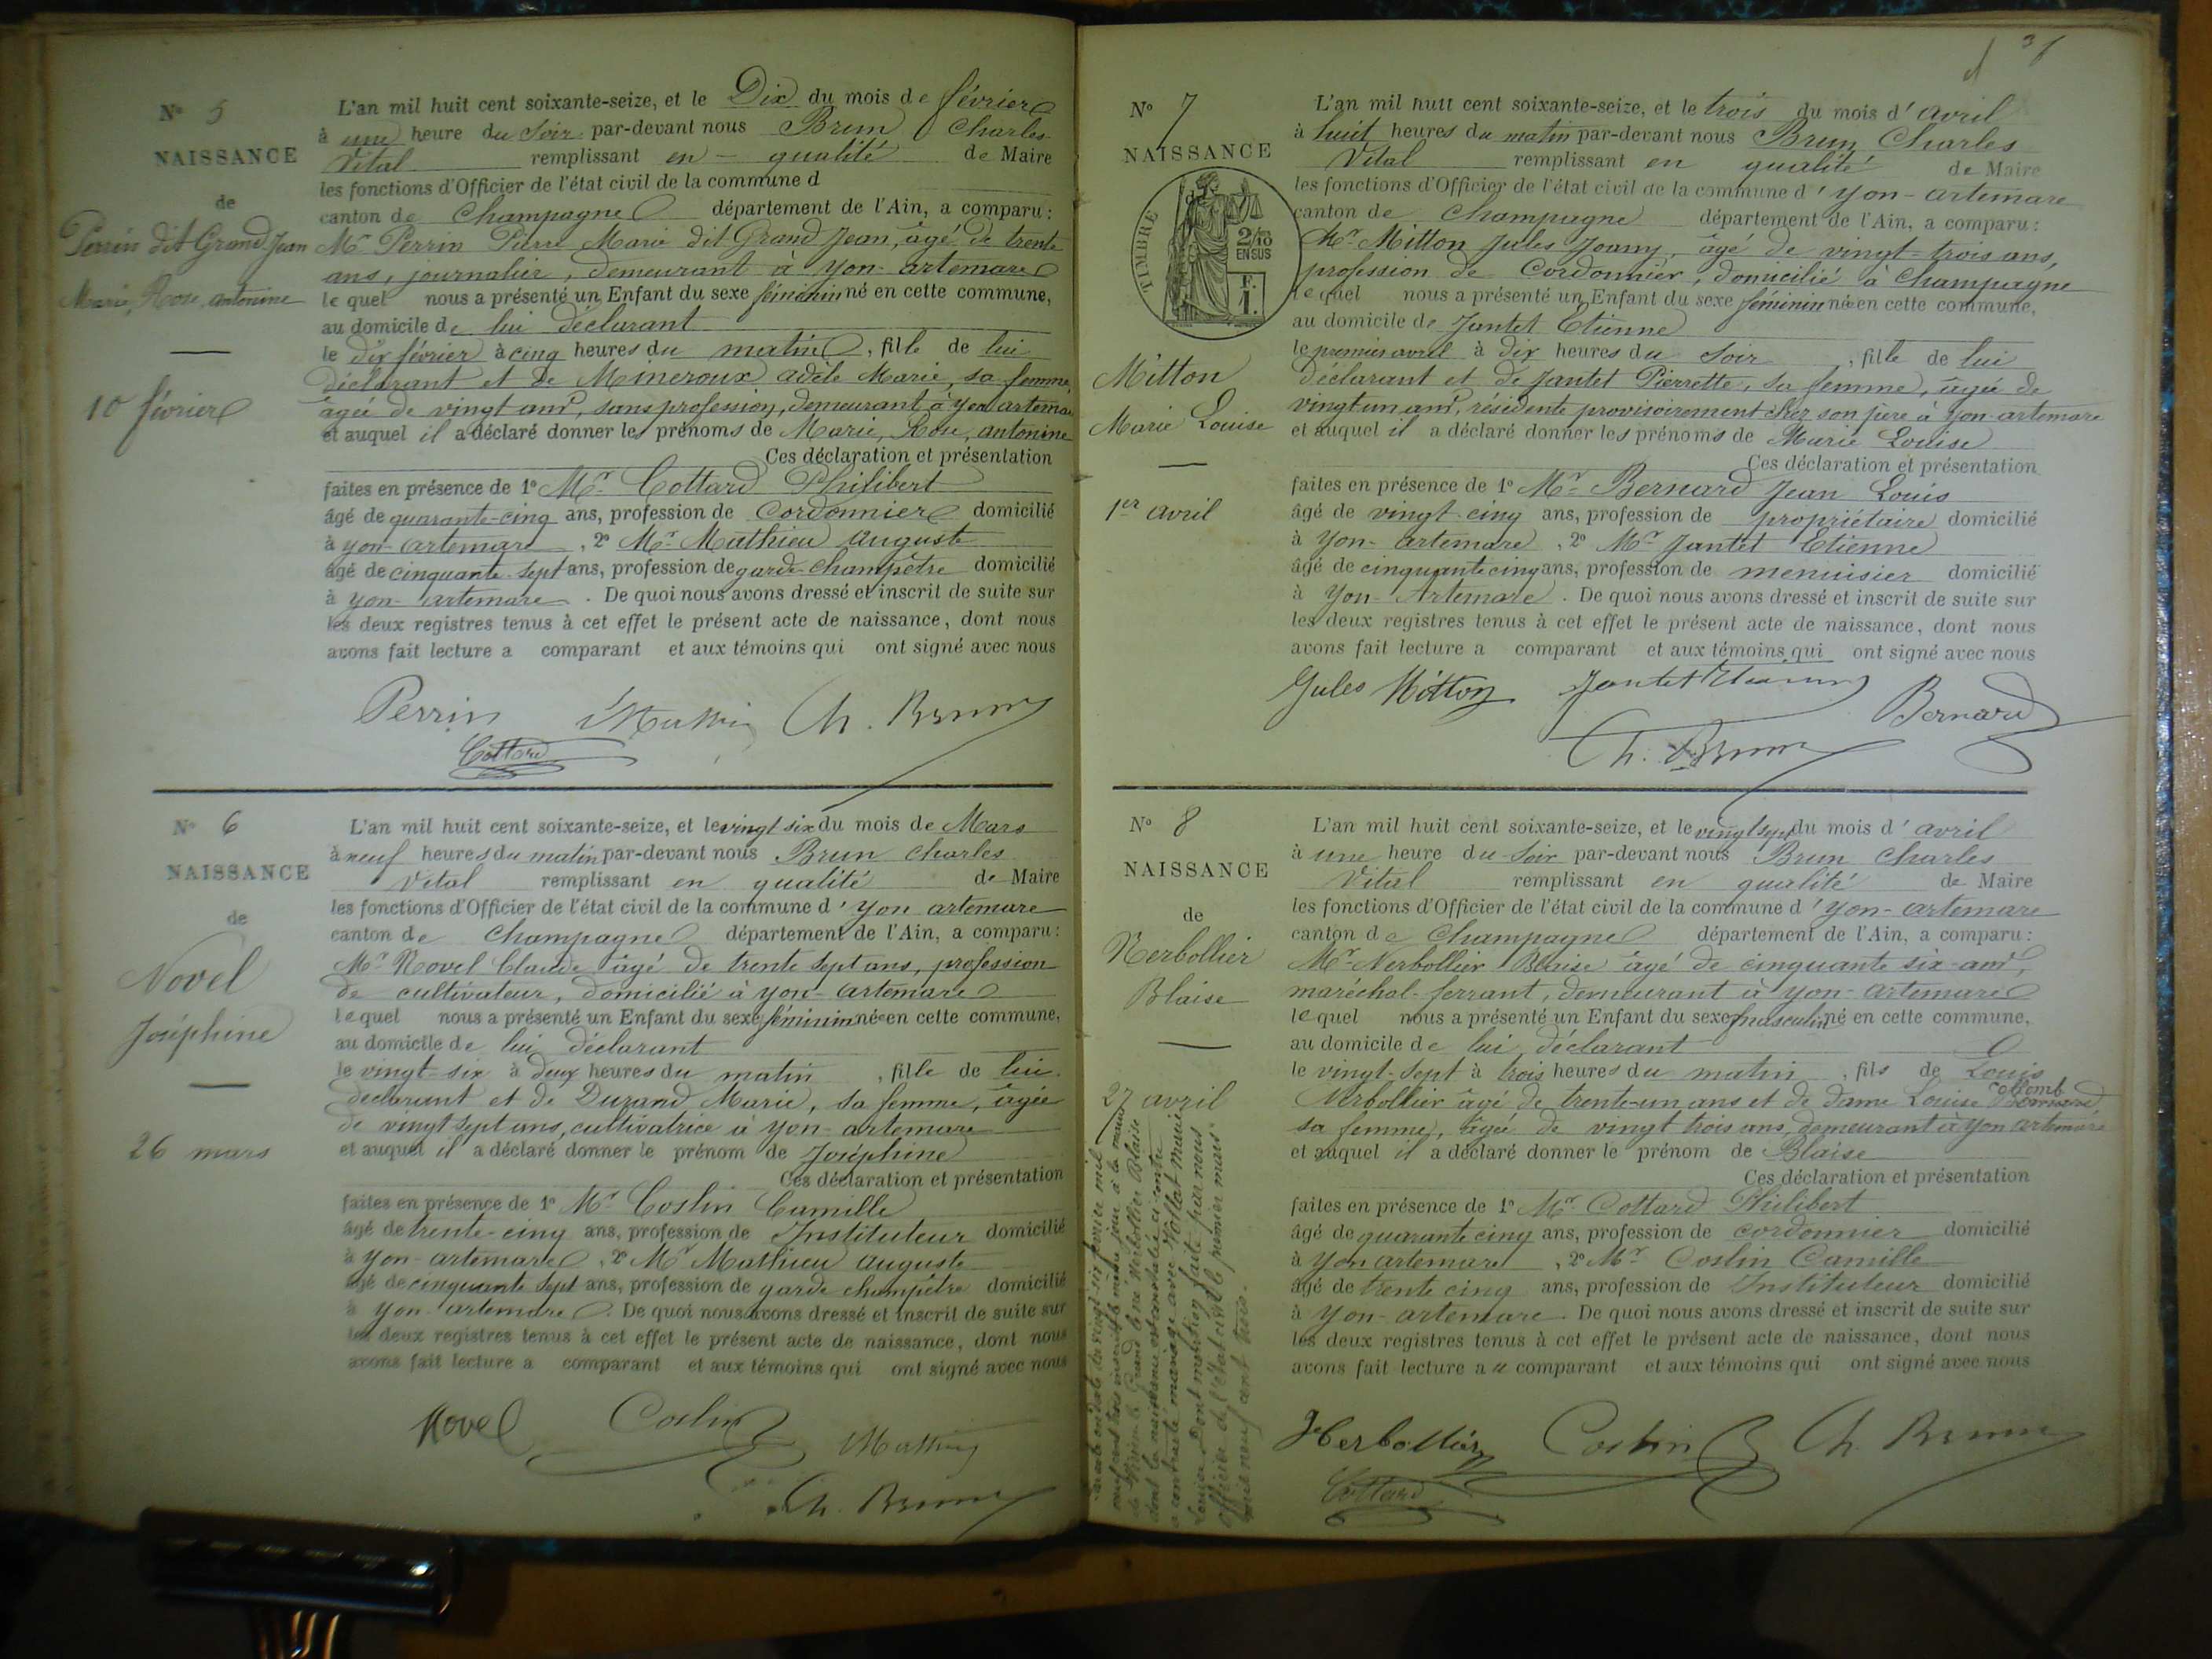 N° 5
NAISSANCE
de
Perrin dit Grand Jean
Marie, Rose, antonine
10 février
L'an mil huit cent soixante-seize, et le Dix du mois de février
à une heure du Soir par-devant nous Brun Charles
Vital remplissant en qualité de Maire
les fonctions d'Officier de l'état civil de la commune d
canton de Champagne département de l'Ain, a comparu :
Mr Perrin Pierre Marie dit Grand Jean, âgé de trente
ans, journalier, demeurant à Yon-artemare
le quel nous a présenté un Enfant du sexe féminin né en cette commune,
au domicile de lui déclarant
le dix février à cinq heures du matin, fille de lui
déclarant et de Mineroux adèle Marie, sa femme,
âgée de vingt ans, sans profession, demeurant à Yon artemare
et auquel il a déclaré donner les prénoms de Marie, Rose, antonine
Ces déclaration et présentation
faites en présence de 1° Mr Cottard Philibert
âgé de quarante-cinq ans, profession de Cordonnier domicilié
à yon-artemare, 2° Mr Mathieu Auguste
âgé de cinquante-sept ans, profession de garde-champêtre domicilié
à yon-artemare. De quoi nous avons dressé et inscrit de suite sur
les deux registres tenus à cet effet le présent acte de naissance, dont nous
avons fait lecture a comparant et aux témoins qui ont signé avec nous
Perrin Mathieu Ch. Brun
Cottard
N° 6
NAISSANCE
de
Novel
Joséphine
26 mars
L'an mil huit cent soixante-seize, et le vingt six du mois de Mars
à neuf heures du matin par-devant nous Brun Charles
Vital remplissant en qualité de Maire
les fonctions d'Officier de l'état civil de la commune d'yon artemare
canton de Champagne département de l'Ain, a comparu :
Mr Novel Claude âgé de trente sept ans, profession
de cultivateur, domicilié à yon-artemare
lequel nous a présenté un Enfant du sexe féminin née en cette commune,
au domicile de lui déclarant
le vingt-six à deux heures du matin, fille de lui
déclarant et de Durand Marie, sa femme, âgée
de vingt sept ans, cultivatrice à yon-artemare
et auquel il a déclaré donner le prénom de Joséphine
Ces déclaration et présentation
faites en présence de 1° Mr Coslin Camille
âgé de trente-cinq ans, profession de Instituteur domicilié
à yon-artemare, 2° Mr Mathieu Auguste
âgé de cinquante sept ans, profession de garde champêtre domicilié
à yon-artemare. De quoi nous avons dressé et inscrit de suite sur
les deux registres tenus à cet effet le présent acte de naissance, dont nous
avons fait lecture a comparant et aux témoins qui ont signé avec nous
Novel Coslin Mathieu
Ch. Brun
N° 7
NAISSANCE
de
TIMBRE
2/10
EN SUS
F.
1.
Mitton
Marie Louise
1er avril
L'an mil huit cent soixante-seize, et le trois du mois d'avril
à huit heures du matin par-devant nous Brun Charles
Vital remplissant en qualité de Maire
les fonctions d'Officier de l'état civil de la commune d'yon-artemare
canton de Champagne département de l'Ain, a comparu :
Mr Mitton Jules Joamy, âgé de vingt-trois ans,
profession de Cordonnier, domicilié à Champagne
lequel nous a présenté un Enfant du sexe féminin née en cette commune,
au domicile de Jantet Etienne
le premier avril à dix heures du Soir, fille de lui
déclarant et de Jantet Pierrette, sa femme, âgée de
vingt un ans, résidente provisoirement chez son père à yon-artemare
et auquel il a déclaré donner les prénoms de Marie Louise
Ces déclaration et présentation
faites en présence de 1° Mr Bernard Jean Louis
âgé de vingt-cinq ans, profession de propriétaire domicilié
à Yon-artemare, 2° Mr Jantet Etienne
âgé de cinquante cinq ans, profession de menuisier domicilié
à Yon-Artemare. De quoi nous avons dressé et inscrit de suite sur
les deux registres tenus à cet effet le présent acte de naissance, dont nous
avons fait lecture a comparant et aux témoins qui ont signé avec nous
Jules Mitton Jantet Etienne Bernard
Ch. Brun
N° 8
NAISSANCE
de
Nerbollier
Blaise
27 avril
L'an mil huit cent soixante-seize, et le vingt sept du mois d'avril
à une heure du Soir par-devant nous Brun Charles
Vital remplissant en qualité de Maire
les fonctions d'Officier de l'état civil de la commune d'yon-artemare
canton de Champagne département de l'Ain, a comparu :
Mr Nerbollier Blaise âgé de cinquante six ans,
maréchal-ferrant, demeurant à yon-artemare
lequel nous a présenté un Enfant du sexe masculin né en cette commune,
au domicile de lui déclarant
le vingt-sept à trois heures du matin, fils de Louis
Nerbollier âgé de trente-un ans et de dame Louise Collomb
sa femme, âgée de vingt trois ans, demeurant à yon artemare
et auquel il a déclaré donner le prénom de Blaise
Ces déclaration et présentation
faites en présence de 1° Mr Cottard Philibert
âgé de quarante cinq ans, profession de cordonnier domicilié
à yon artemare, 2° Mr Coslin Camille
âgé de trente cinq ans, profession de Instituteur domicilié
à yon-artemare. De quoi nous avons dressé et inscrit de suite sur
les deux registres tenus à cet effet le présent acte de naissance, dont nous
avons fait lecture au comparant et aux témoins qui ont signé avec nous
Nerbollier Coslin Ch. Brun
Cottard
par acte en date du vingt-six février mil
neuf cent trois inscrit le même jour à la mairie
de le Grand le né Nerbollier Blaise
dont la naissance est constatée ci-contre
a contracté mariage avec Vollat Marie
Louise. Dont mention faite par nous
Officier de l'état civil le premier mars
mil neuf cent trois.